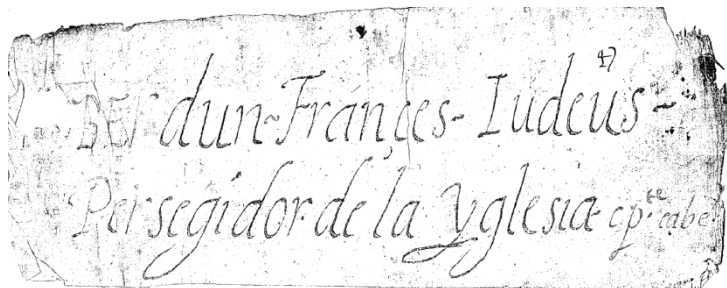 47
BERdun~Françes-Iudeus-
Persegidor de la yglesia